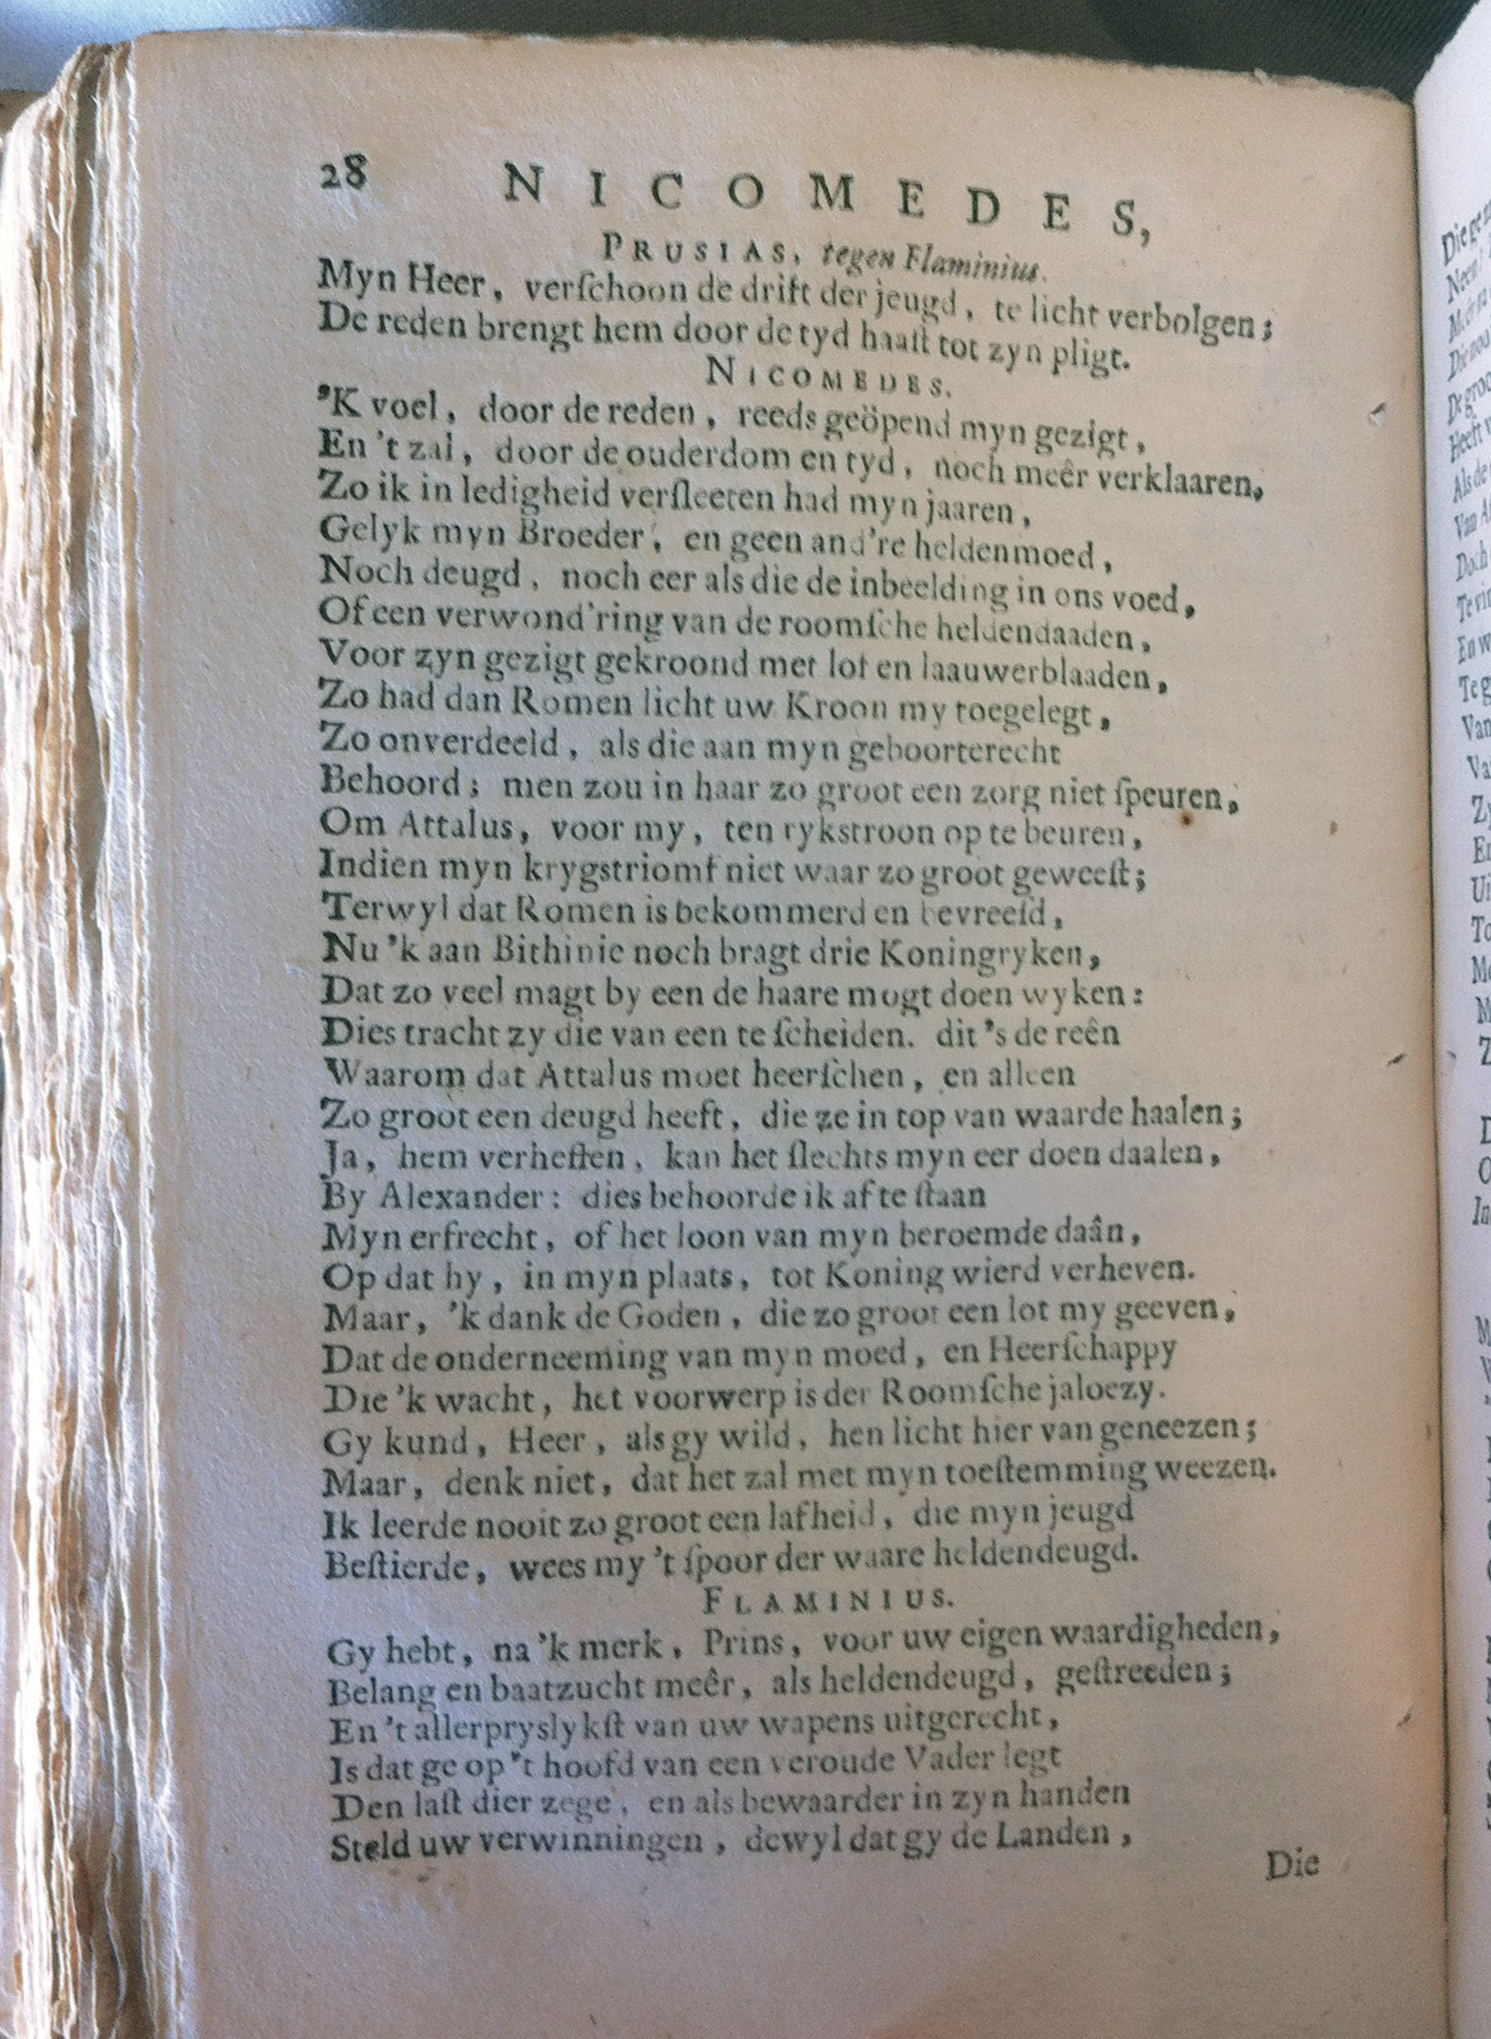 28 NICOMEDES,
PRUSIAS, tegen Flaminius.
Myn Heer, verſchoon de drift der jeugd, te licht verbolgen;
De reden brengt hem door de tyd haaſt tot zyn pligt.
NICOMEDES.
'K voel, door de reden, reeds geöpend myn gezigt,
En 't zal, door de ouderdom en tyd, noch meêr verklaaren,
Zo ik in ledigheid verſleeten had myn jaaren,
Gelyk myn Broeder, en geen and're heldenmoed,
Noch deugd, noch eer als die de inbeelding in ons voed,
Of een verwond'ring van de roomſche heldendaaden,
Voor zyn gezigt gekroond met lof en laauwerblaaden,
Zo had dan Romen licht uw Kroon my toegelegt,
Zo onverdeeld, als die aan myn geboorterecht
Behoord; men zou in haar zo groot een zorg niet ſpeuren,
Om Attalus, voor my, ten rykstroon op te beuren,
Indien myn krygstriomf niet waar zo groot geweeſt;
Terwyl dat Romen is bekommerd en bevreeſd,
Nu 'k aan Bithinie noch bragt drie Koningryken,
Dat zo veel magt by een de haare mogt doen wyken:
Dies tracht zy die van een te ſcheiden. dit 's de reên
Waarom dat Attalus moet heerſchen, en alleen
Zo groot een deugd heeft, die ze in top van waarde haalen;
Ja, hem verheffen, kan het ſlechts myn eer doen daalen,
By Alexander: dies behoorde ik af te ſtaan
Myn erfrecht, of het loon van myn beroemde daân,
Op dat hy, in myn plaats, tot Koning wierd verheven.
Maar, 'k dank de Goden, die zo groot een lot my geeven,
Dat de onderneeming van myn moed, en Heerſchappy
Die 'k wacht, het voorwerp is der Roomſche jaloezy.
Gy kund, Heer, als gy wild, hen licht hier van geneezen;
Maar, denk niet, dat het zal met myn toeſtemming weezen.
Ik leerde nooit zo groot een lafheid, die myn jeugd
Beſtierde, wees my 't ſpoor der waare heldendeugd.
FLAMINIUS.
Gy hebt, na 'k merk, Prins, voor uw eigen waardigheden,
Belang en baatzucht meêr, als heldendeugd, geſtreeden;
En 't allerpryslykſt van uw wapens uitgerecht,
Is dat ge op 't hoofd van een veroude Vader legt
Den laſt dier zege, en als bewaarder in zyn handen
Steld uw verwinningen, dewyl dat gy de Landen,
Die